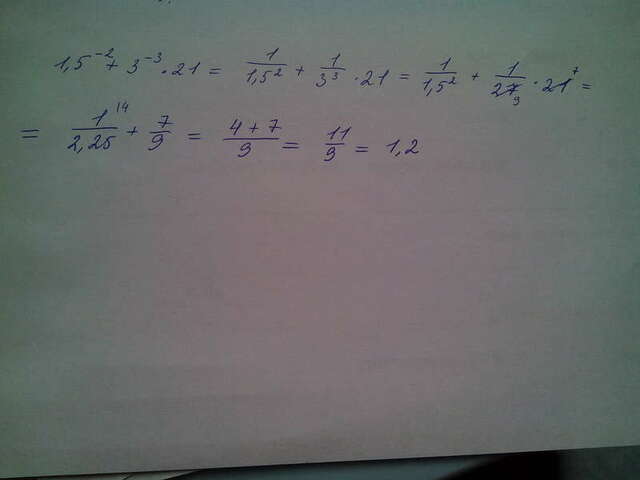 1,5⁻² + 3⁻³ · 21 = 1/1,5² + 1/3³ · 21 = 1/1,5² + 1/27 9 · 21 7 =
= 1/2,25 14 + 7/9 = 4+7/9 = 11/9 = 1,2